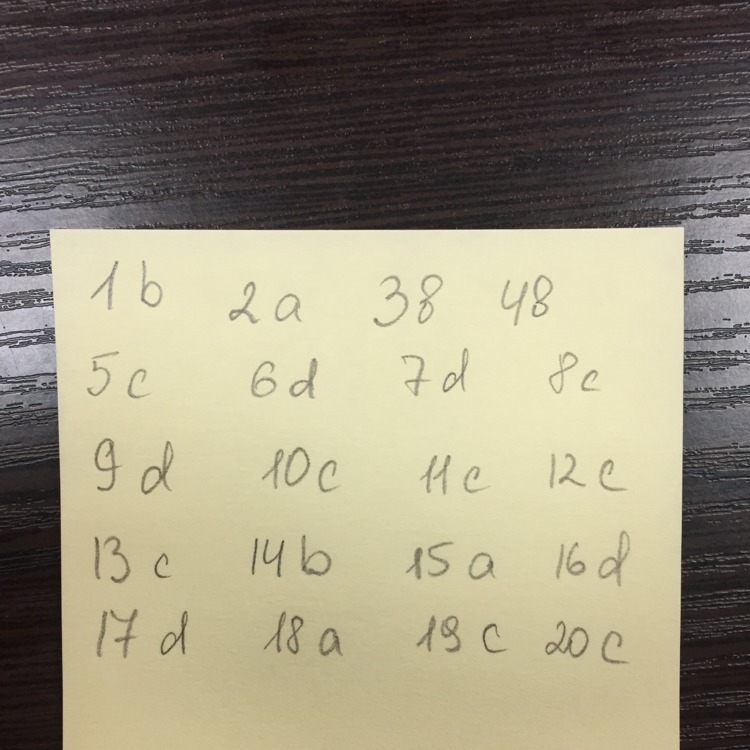 1 b 2 a 38 48
5 c 6 d 7 d 8 c
9 d 10 c 11 c 12 c
13 c 14 b 15 a 16 d
17 d 18 a 19 c 20 c